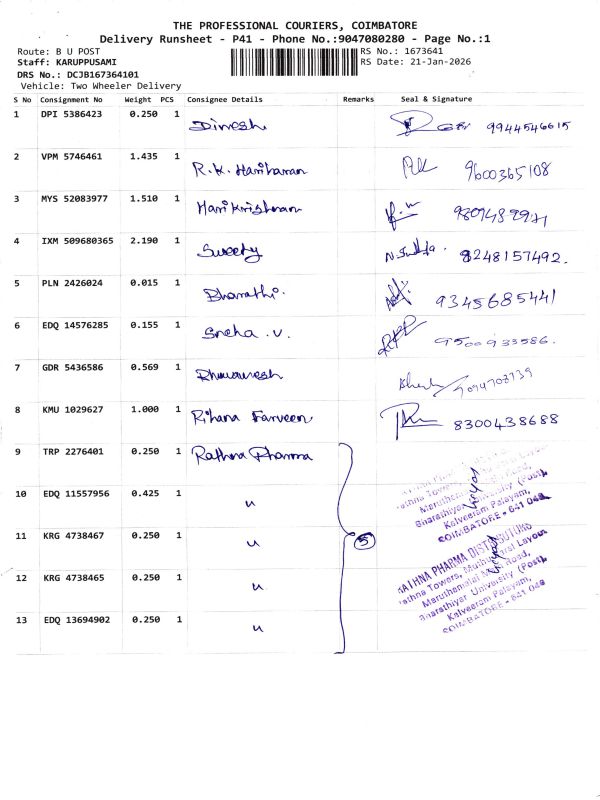 THE PROFESSIONAL COURIERS, COIMBATORE
Delivery Runsheet - P41 - Phone No.:9047080280 - Page No.:1
Route: B U POST RS No.: 1673641
Staff: KARUPPUSAMI RS Date: 21-Jan-2026
DRS No.: DCJB167364101
Vehicle: Two Wheeler Delivery
S No Consignment No Weight PCS Consignee Details Remarks Seal & Signature
1 DPI 5386423 0.250 1 Dinesh 9944546615
2 VPM 5746461 1.435 1 R.K. Hariharan 9600365108
3 MYS 52083977 1.510 1 Harikrishnan
4 IXM 509680365 2.190 1 Sweety 8248157492.
5 PLN 2426024 0.015 1 Bharathi. 9345685441
6 EDQ 14576285 0.155 1 Sneha .V. 9500933586.
7 GDR 5436586 0.569 1 Bhuvanesh 9094708739
8 KMU 1029627 1.000 1 Rihana Farveen 8300438688
9 TRP 2276401 0.250 1 Rathna Pharma
10 EDQ 11557956 0.425 1 u
11 KRG 4738467 0.250 1 u 5
12 KRG 4738465 0.250 1 u
13 EDQ 13694902 0.250 1 u
Bharathiyar University (Post),
Kalveeram Palayam,
COIMBATORE - 641 046
RATHNA PHARMA DISTRIBUTORS
Rathna Towers, Layout
Maruthamalai Main Road,
Bharathiyar University (Post),
Kalveeram Palayam,
COIMBATORE - 641 046